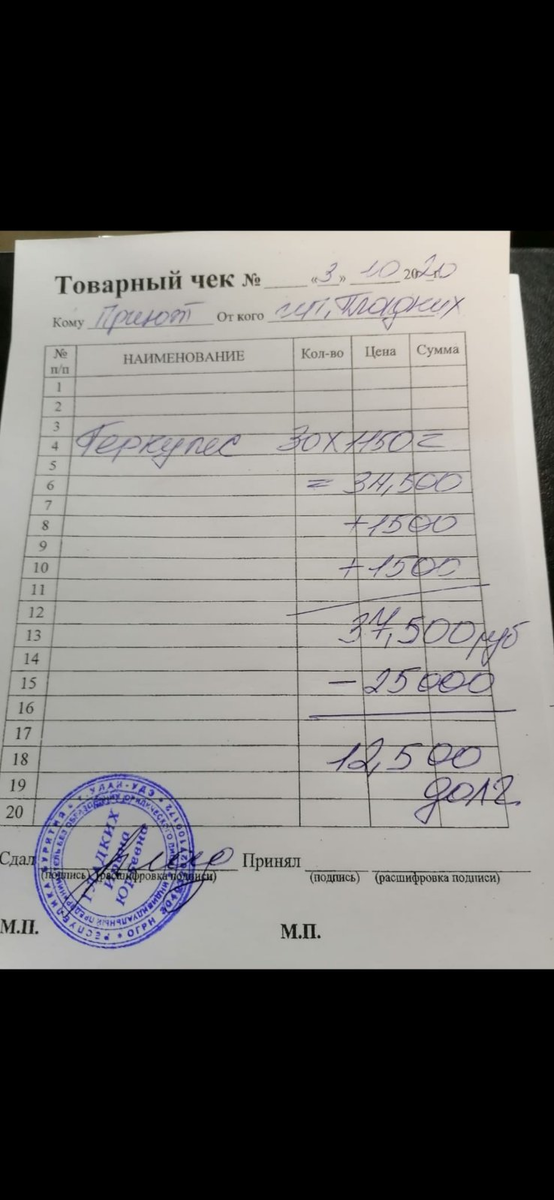 Товарный чек № «3» 10 2020
Кому Приют От кого ип. Гладких
№ п/п НАИМЕНОВАНИЕ Кол-во Цена Сумма
1
2
3
4 Геркулес 30х1150=
5
6 = 34,500
7
8 +1500
9
10 +1500
11
12
13 37,500 руб
14
15 - 25000
16
17
18 12,500
19 долг
20
Сдал Принял
(подпись) (расшифровка подписи) (подпись) (расшифровка подписи)
М.П. М.П.
РЕСПУБЛИКА БУРЯТИЯ * г. УЛАН-УДЭ * ОГРН
ГЛАДКИХ
Юрьевна